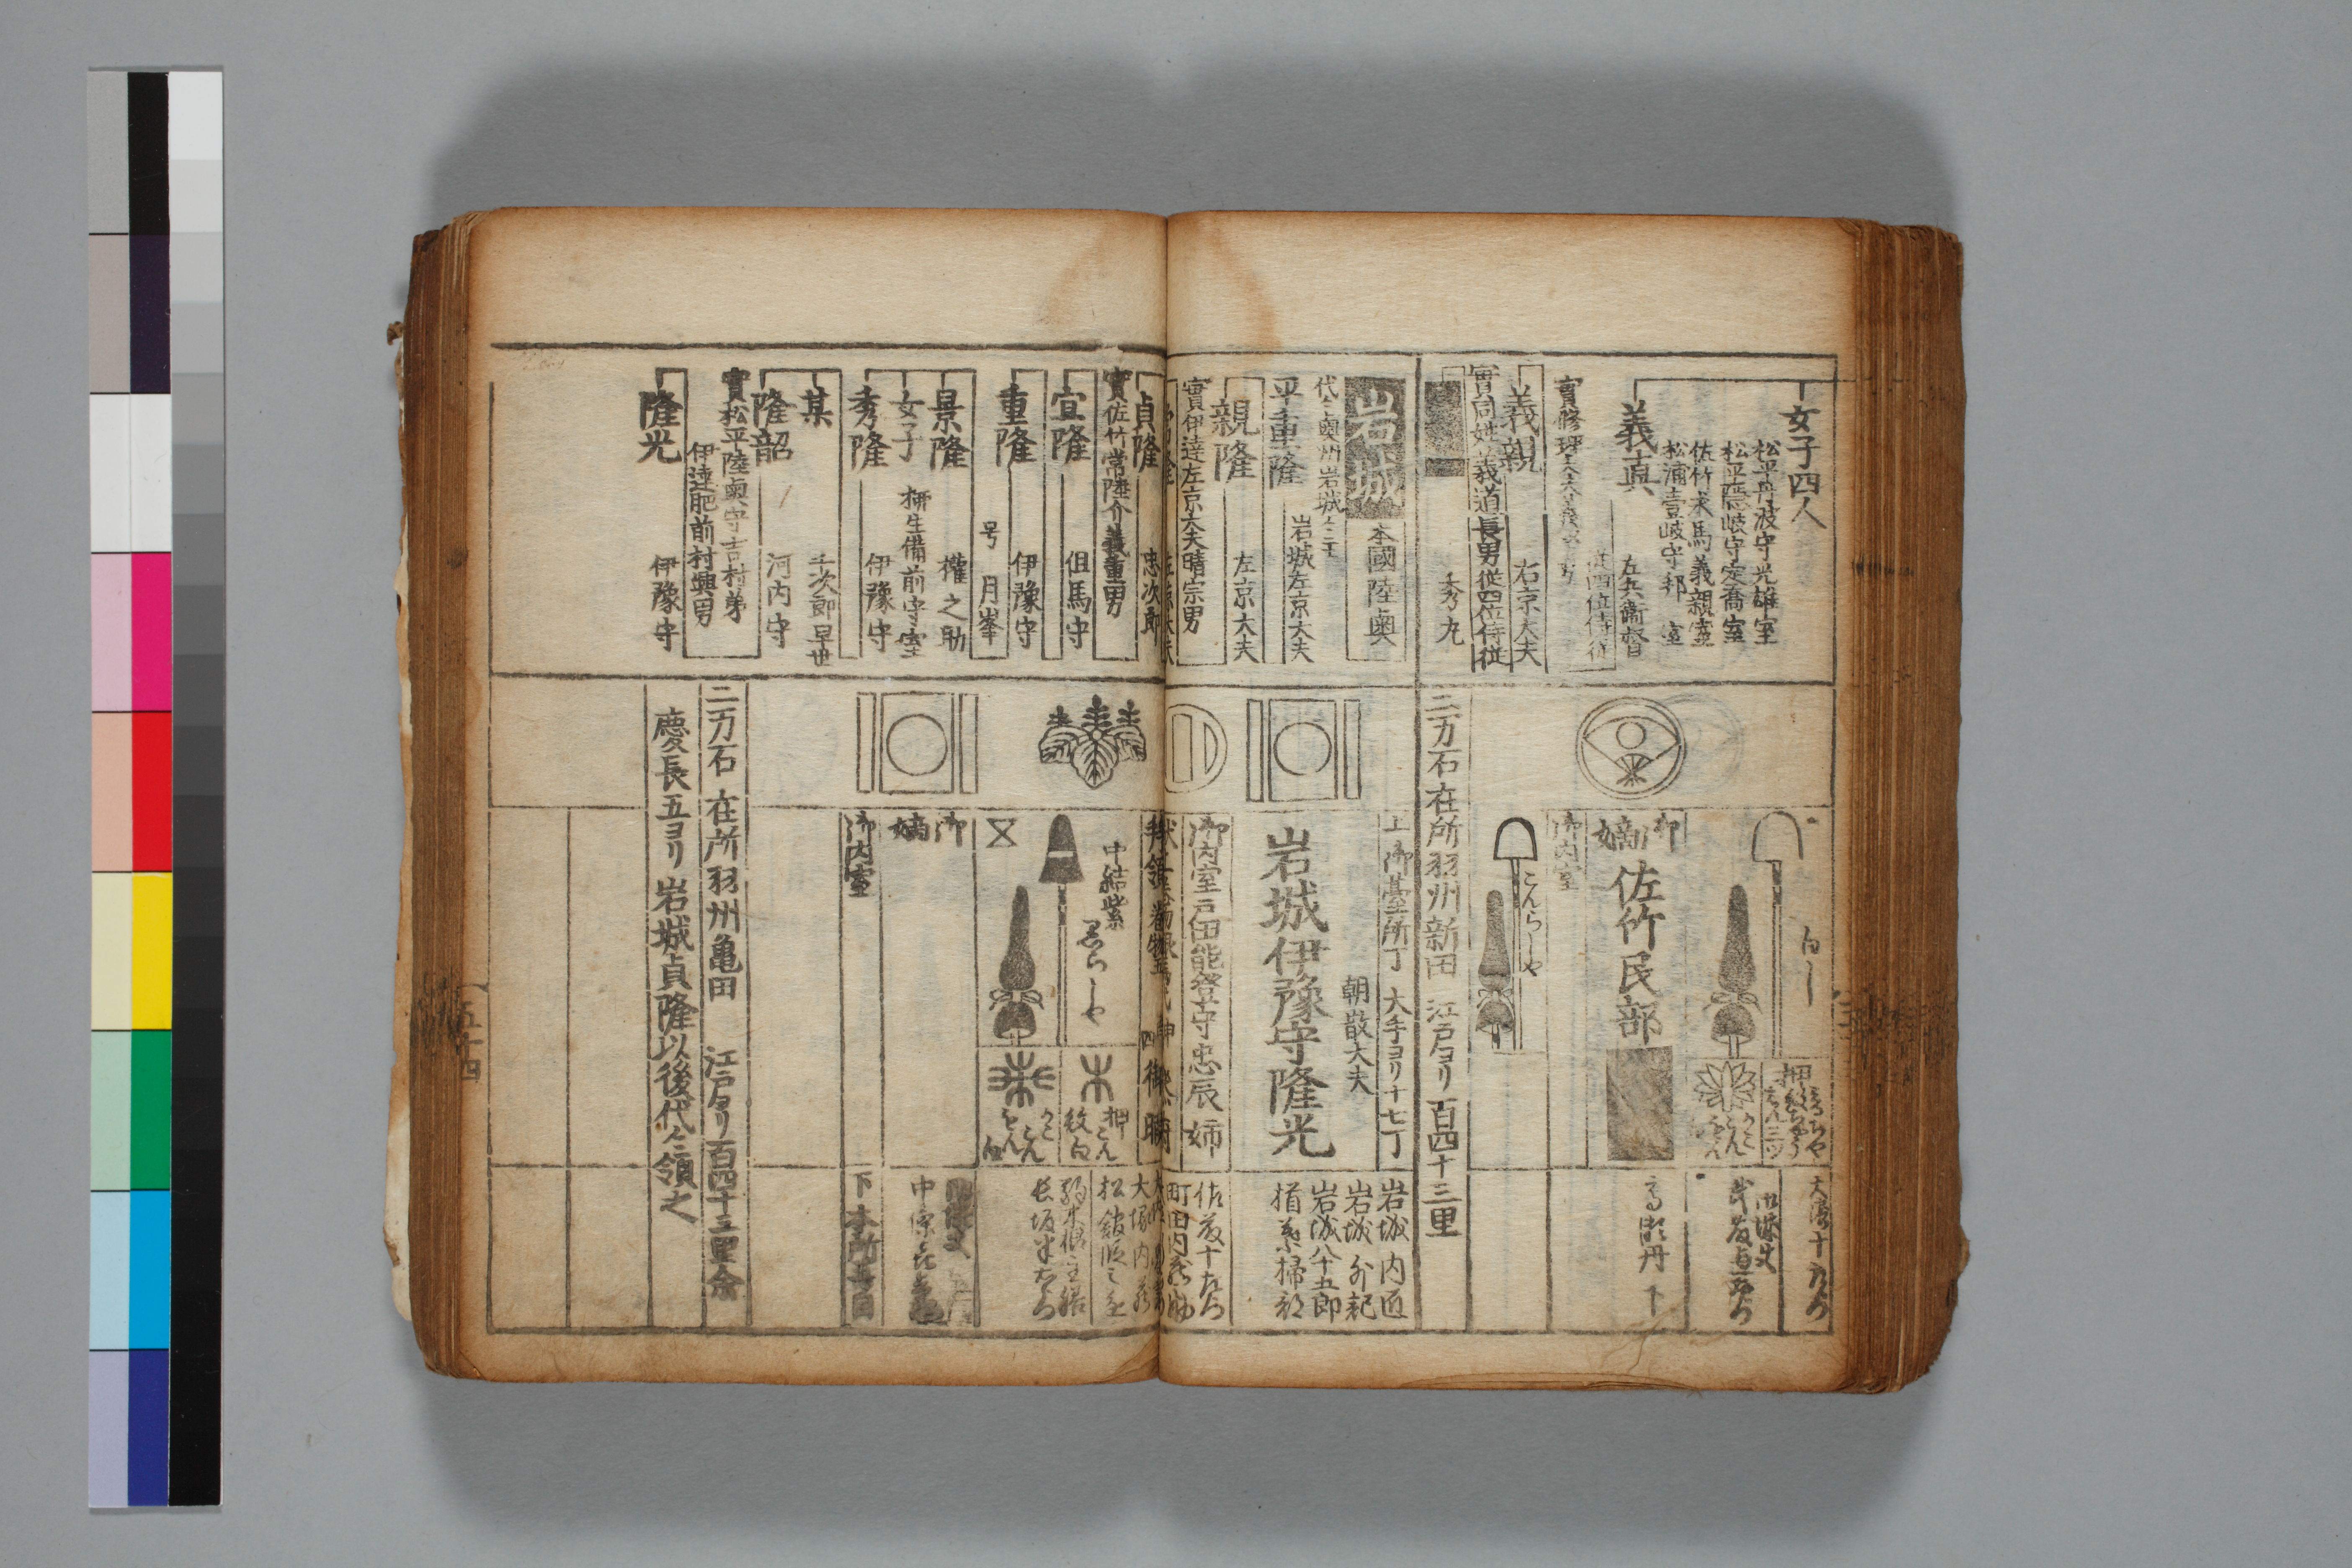 女子四人
松平丹波守光雄室
松平隠岐守定喬室
佐竹求馬義親室
松浦壹岐守邦 室
義真
左兵衛督
従四位侍従
義親
右京大夫
實同姓義道長男従四位侍従
秀丸
白し
御嫡
佐竹民部
御内室
こんらしや
二万石在所羽州新田 江戸ヨリ百四十三里
岩城
本國陸奥
代々奥州岩城
平重隆
岩城左京大夫
親隆
左京大夫
實伊達左京大夫晴宗男
上御臺所丁 大手ヨリ十七丁
朝散大夫
岩城伊豫守隆光
御内室戸田能登守忠辰 姉
岩城 内匠
岩城 外記
岩城八十五郎
猪兼掃部
町田内蔵助
貞隆
忠次郎
實佐竹常陸介義重男
宣隆
但馬守
重隆
伊豫守
号 月峯
景隆
權之助
女子
柳生備前守室
秀隆
伊豫守
某
千次郎早世
隆韶
河内守
實松平陸奥守吉村弟
伊達肥前村興男
隆光
伊豫守
中結紫
押こん
紋白
大塚内蔵
御嫡
御内室
下 本所
二万石 在所羽州亀田 江戸ヨリ百四十三里余
慶長五ヨリ岩城貞隆以後代々領之
五十四